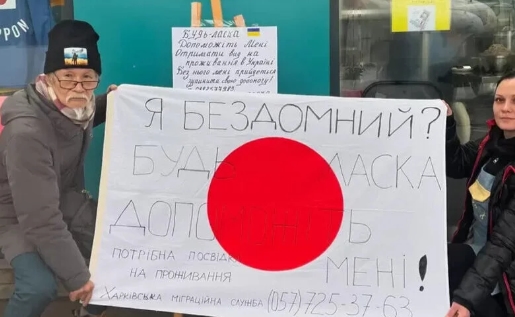 PPON
БУДЬ-ласка
Допоможіть Мені
Отримати вид на
проживання в Україні
Без нього мені прийдеться
Я БЕЗДОМНИЙ?
БУДЬ ЛАСКА
ДОПОМ ТЬ
МЕНІ!
ПОТРІБНА ПОСВІДК
НА ПРОЖИВАННЯ
ХАРКІВСЬКА МІГРАЦІЙНА СЛУЖБА (057)725-37-63